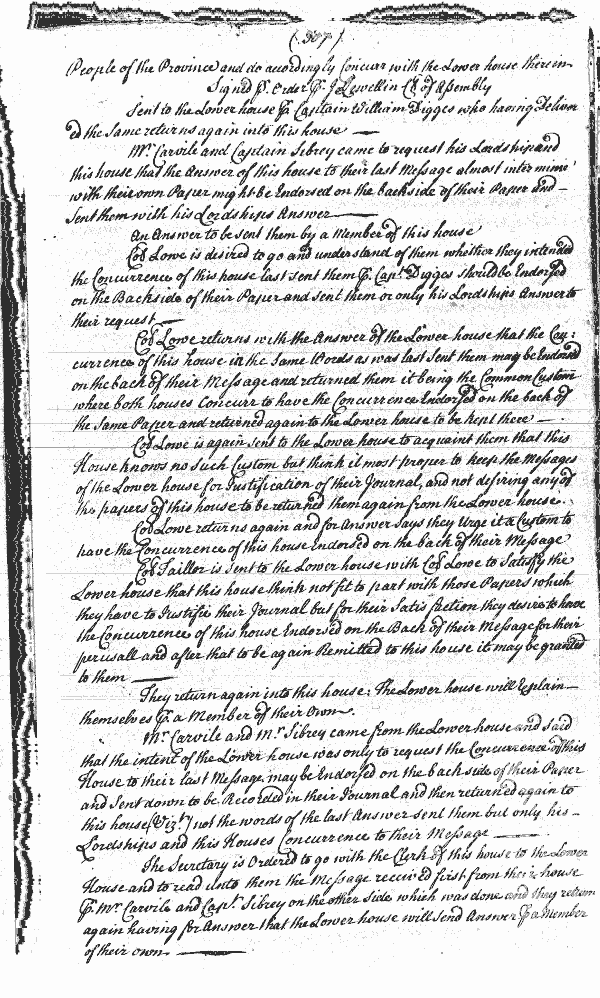 ( 307 )
People of the Province and do accordingly Concurr with the Lower house therein
Signed P. Order P. J Lewellin Clk of Assembly
Sent to the Lower house P. Captain William Digges who having Deliver
ed the Same returns again into this house
Mr. Carvile and Captain Sibrey came to request his Lordship and
this house that the Answer of this house to their last Message almost inter mimi
with their own Paper might be Endorsed on the backside of their Paper and
Sent them with his Lordships Answer
An Answer to be sent them by a Member of this house
Col Lowe is desired to go and understand of them whether they intended
the Concurrence of this house last sent them P. Capt. Digges should be Endorsed
on the Backside of their Paper and sent them or only his Lordships Answer to
their request
Col Lowe returns with the Answer of the Lower house that the Con:
currence of this house in the Same Words as was last Sent them may be Endorsed
on the back of their Message and returned them it being the Common Custom
where both houses Concurr to have the Concurrence Endorsed on the back of
the Same Paper and returned again to the Lower house to be kept there
Col Lowe is again sent to the Lower house to acquaint them that this
House knows no such Custom but think it most proper to keep the Messages
of the Lower house for Justification of their Journal, and not desiring any of
the papers of this house to be returned them again from the Lower house.
Col Lowe returns again and for Answer Says they Urge it a Custom to
have the Concurrence of this house indorsed on the back of their Message
Col Taillor is Sent to the Lower house with Col Lowe to Satisfy the
Lower house that this house think not fit to part with those Papers which
they have to Justifie their Journal but for their Satisfaction they desire to have
the Concurrence of this house Endorsed on the Back of their Message for their
perusall and after that to be again Remitted to this house it may be granted
to them
They return again into this house: The Lower house will Explain
themselves P. a Member of their Own.
Mr. Carvile and Mr. Sibrey came from the Lower house and said
that the intent of the Lower house was only to request the Concurrence of this
House to their last Message, may be Endorsed on the back side of their Paper
and Sent down to be Recorded in their Journal and then returned again to
this house (Vizt.) not the words of the last Answer sent them but only his
Lordships and this Houses Concurrence to their Message
The Secretary is Ordered to go with the Clerk of this house to the Lower
House and to read unto them the Message received first from their house
P. Mr. Carvile and Capt. Sibrey on the other side which was done and they return
again having for Answer that the Lower house will send Answer P. a Member
of their own